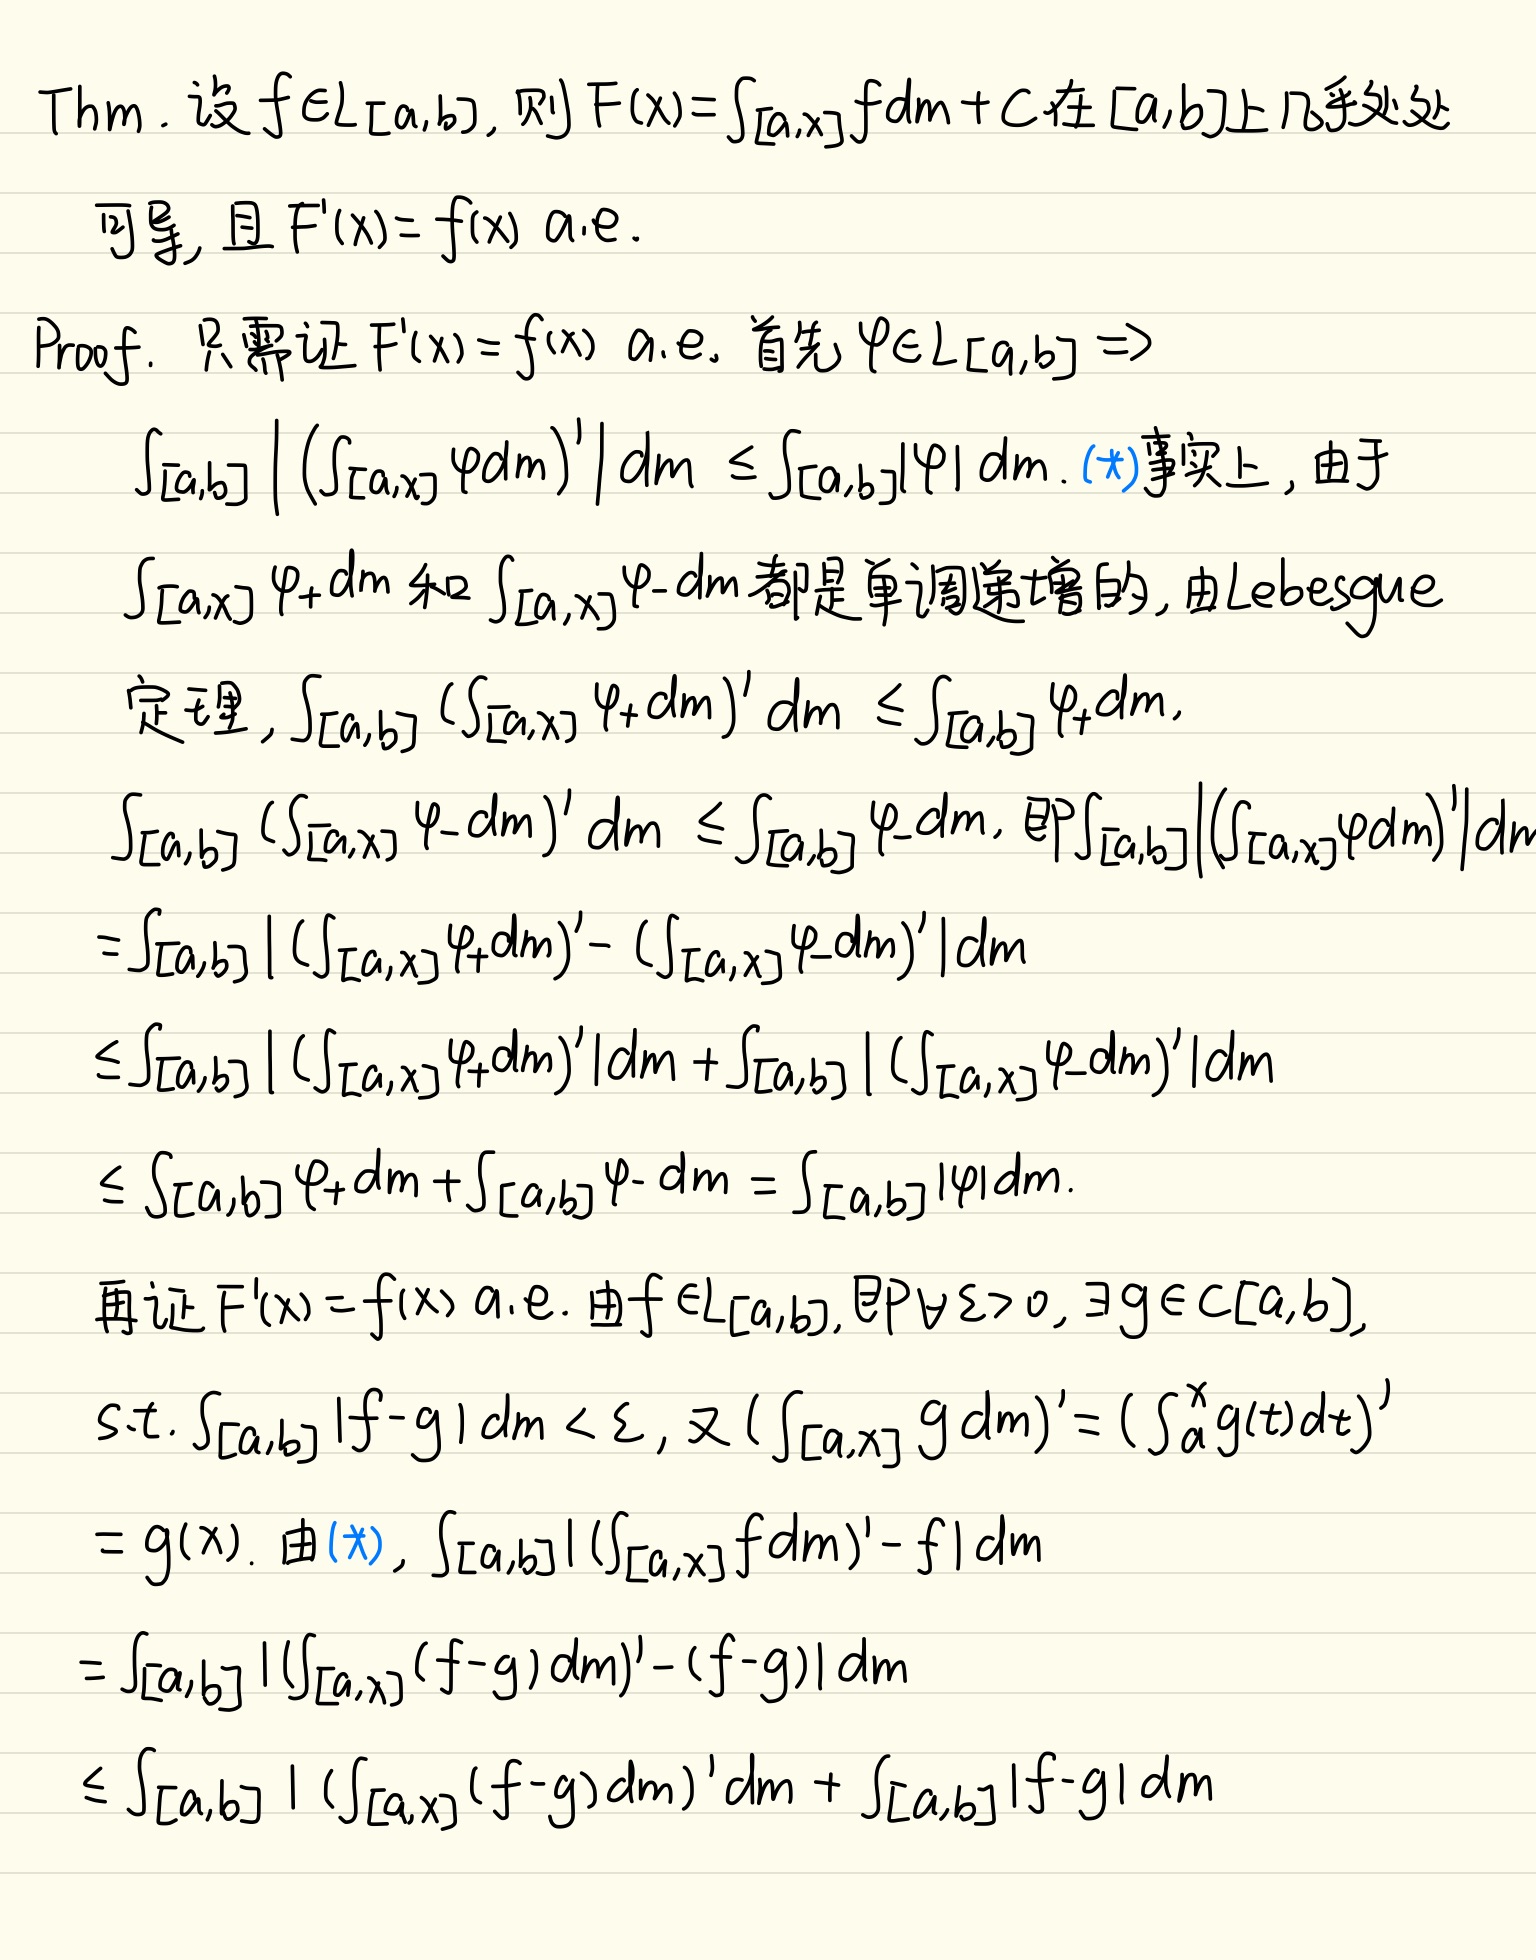 Thm. 设 f∈L[a,b], 则 F(x)=∫[a,x] f dm + C 在 [a,b]上几乎处处
可导, 且 F'(x)=f(x) a.e.
Proof. 只需证 F'(x)=f(x) a.e. 首先 φ∈L[a,b] ⇒
∫[a,b] |(∫[a,x] φdm)'| dm ≤ ∫[a,b] |φ| dm. (*) 事实上, 由于
∫[a,x] φ+ dm 和 ∫[a,x] φ- dm 都是单调递增的, 由Lebesgue
定理, ∫[a,b] (∫[a,x] φ+ dm)' dm ≤ ∫[a,b] φ+ dm,
∫[a,b] (∫[a,x] φ- dm)' dm ≤ ∫[a,b] φ- dm. 即∫[a,b] |(∫[a,x] φdm)'| dm
=∫[a,b] |(∫[a,x] φ+ dm)' - (∫[a,x] φ- dm)'| dm
≤∫[a,b] |(∫[a,x] φ+ dm)'| dm + ∫[a,b] |(∫[a,x] φ- dm)'| dm
≤ ∫[a,b] φ+ dm + ∫[a,b] φ- dm = ∫[a,b] |φ| dm.
再证 F'(x)=f(x) a.e. 由 f∈L[a,b], 即∀ε>0, ∃g∈C[a,b],
s.t. ∫[a,b] |f-g| dm < ε, 又 (∫[a,x] g dm)' = (∫ₐˣ g(t)dt)'
= g(x). 由(*), ∫[a,b] |(∫[a,x] f dm)' - f| dm
= ∫[a,b] |(∫[a,x] (f-g) dm)' - (f-g)| dm
≤ ∫[a,b] |(∫[a,x] (f-g) dm)' dm + ∫[a,b] |f-g| dm